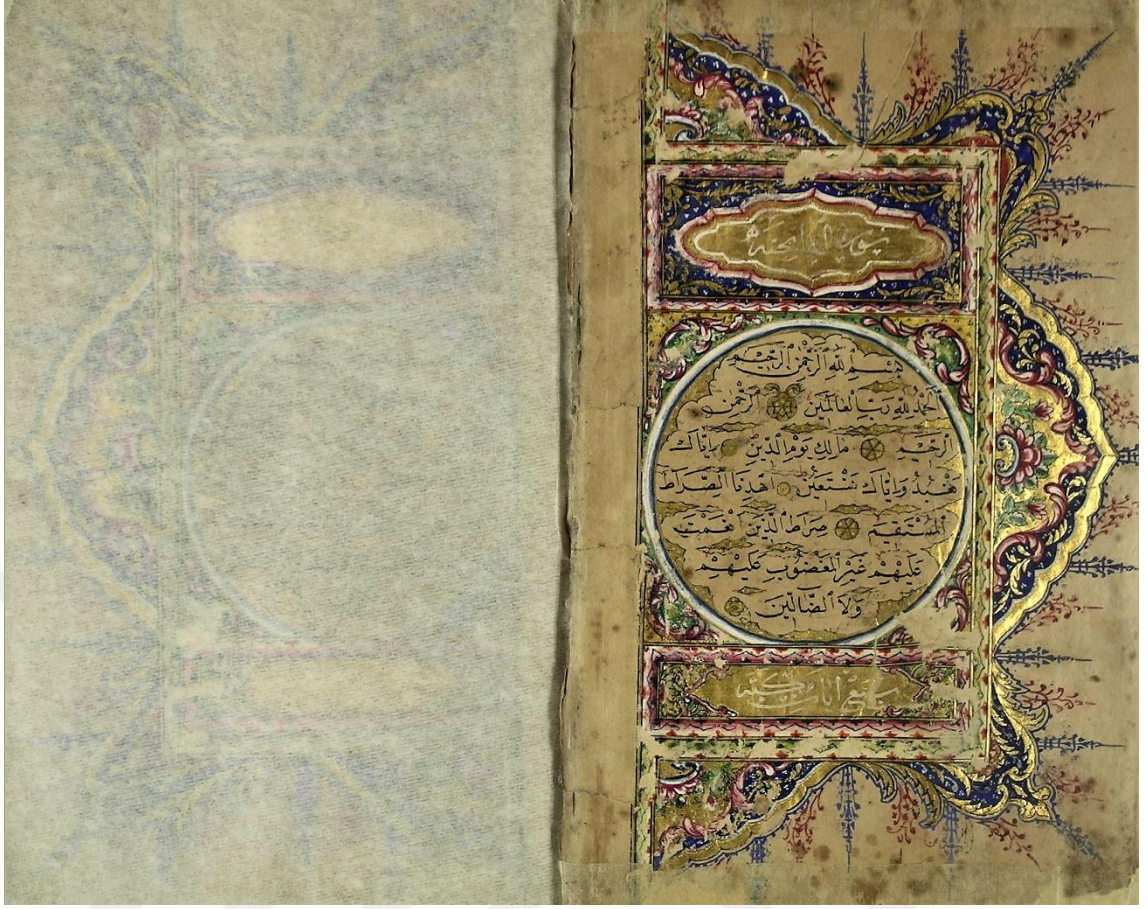 سورة الفاتحة
بسم الله الرحمن الرحيم
الحمد لله رب العالمين الرحمن
الرحيم مالك يوم الدين اياك
نعبد واياك نستعين اهدنا الصراط
المستقيم صراط الذين انعمت
عليهم غير المغضوب عليهم
ولا الضالين
سبع ايات مكية